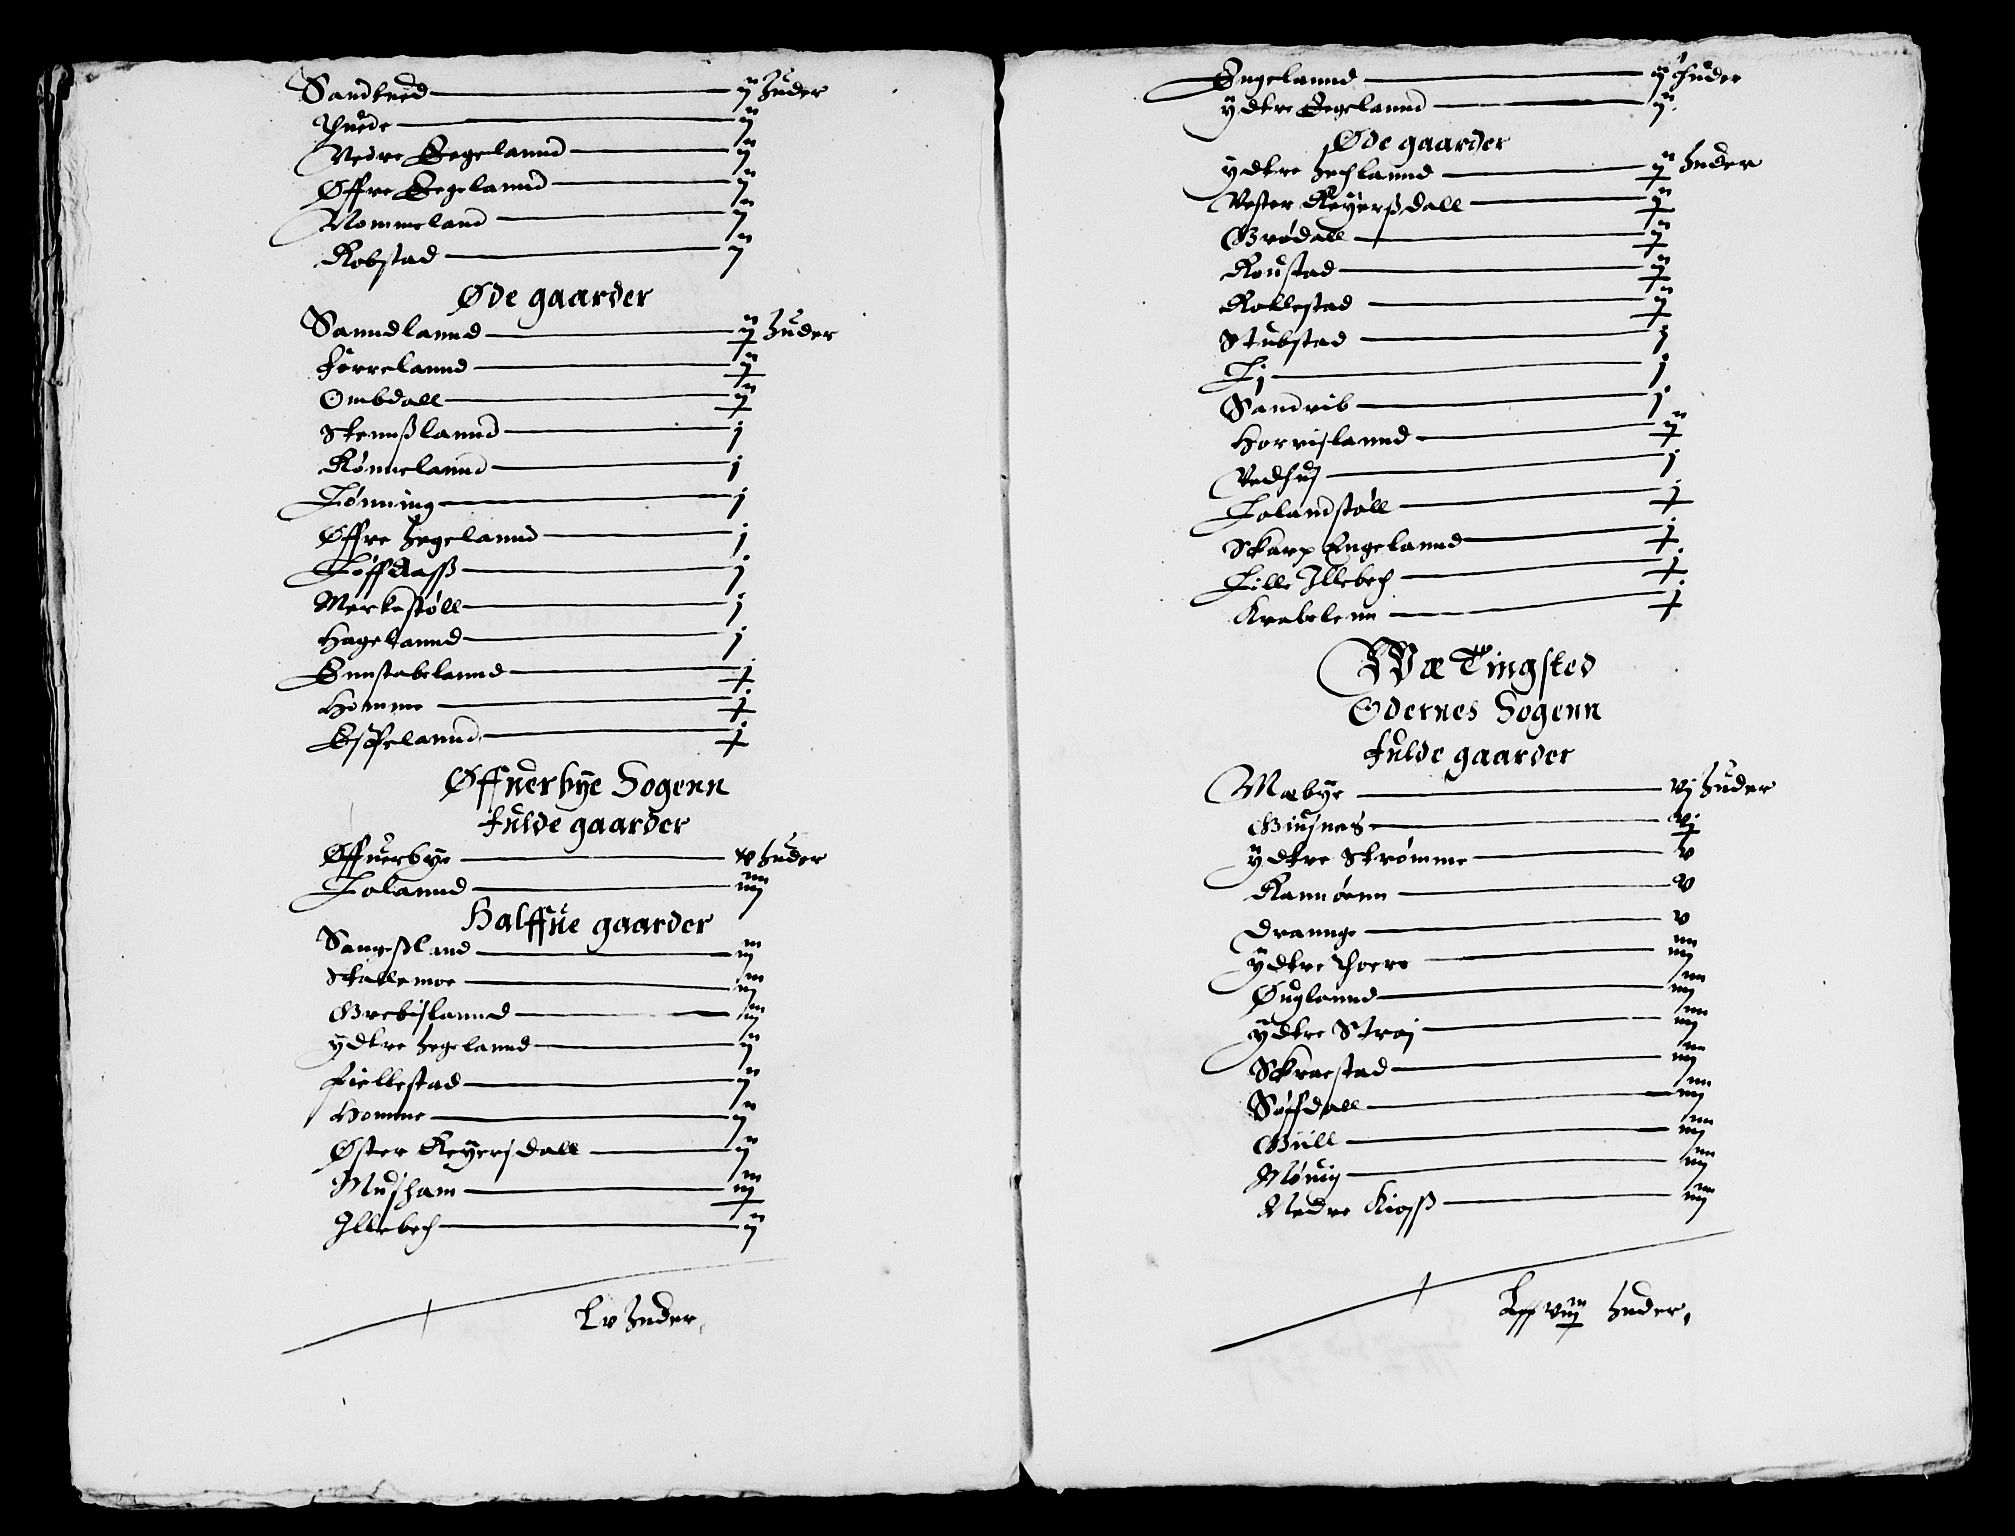 Sandtued ij Huder
Thuede ij
Nedre Eegelannd ij
Øffre Eegelannd ij
Nommeland ij
Robstad ij
Øde gaarder
Sanndlannd ij Huder
Førrelannd ij
Ombdall ij
Stennßlannd j
Rønnelannd j
Lønning j
Øffre Hegelannd j
Løffdaß j
Merkestøll j
Hagelannd j
Gunstabelannd j
Homme j
Espelannd j
Øffuerbye Sogenn
Fulde gaarder
Øffuerbye v Huder
Lolannd iiij
Halffue gaarder
Sangeßland iij
Stallemoe iij
Grebislannd iij
ydtre Hegelannd ij
Fiellestad ij
Homme ij
Øster Reyersdall ij
Musham iij
Illebech ij
Lv Huder,
Engelannd ij Huder
ydtre Eegelannd ij
Øde gaarder
ydtre Hechlannd ij Huder
Vester Reyerßdall ij
Grødall ij
Roustad ij
Rollestad ij
Stubstad j
Lj j
Sandrib j
Horrislannd ij
Vedhus j
Lolandstøll j
Skarp Engelannd j
Lille Illebech j
Krabelenn j
Wæ Tingsted
Odernes Sogenn
Fulde gaarder
Mæbye vj Huder
Giusnes vj
ydtre Strømme v
Rannøenn v
Drannge v
ydtre Thoere iiij
Øuglannd iiij
ydtre Straj iiij
Skraestad iiij
Søffdall iiij
Gull iiij
Møuig iiij
Nedre Kioß iiij
Lxxviij Huder,